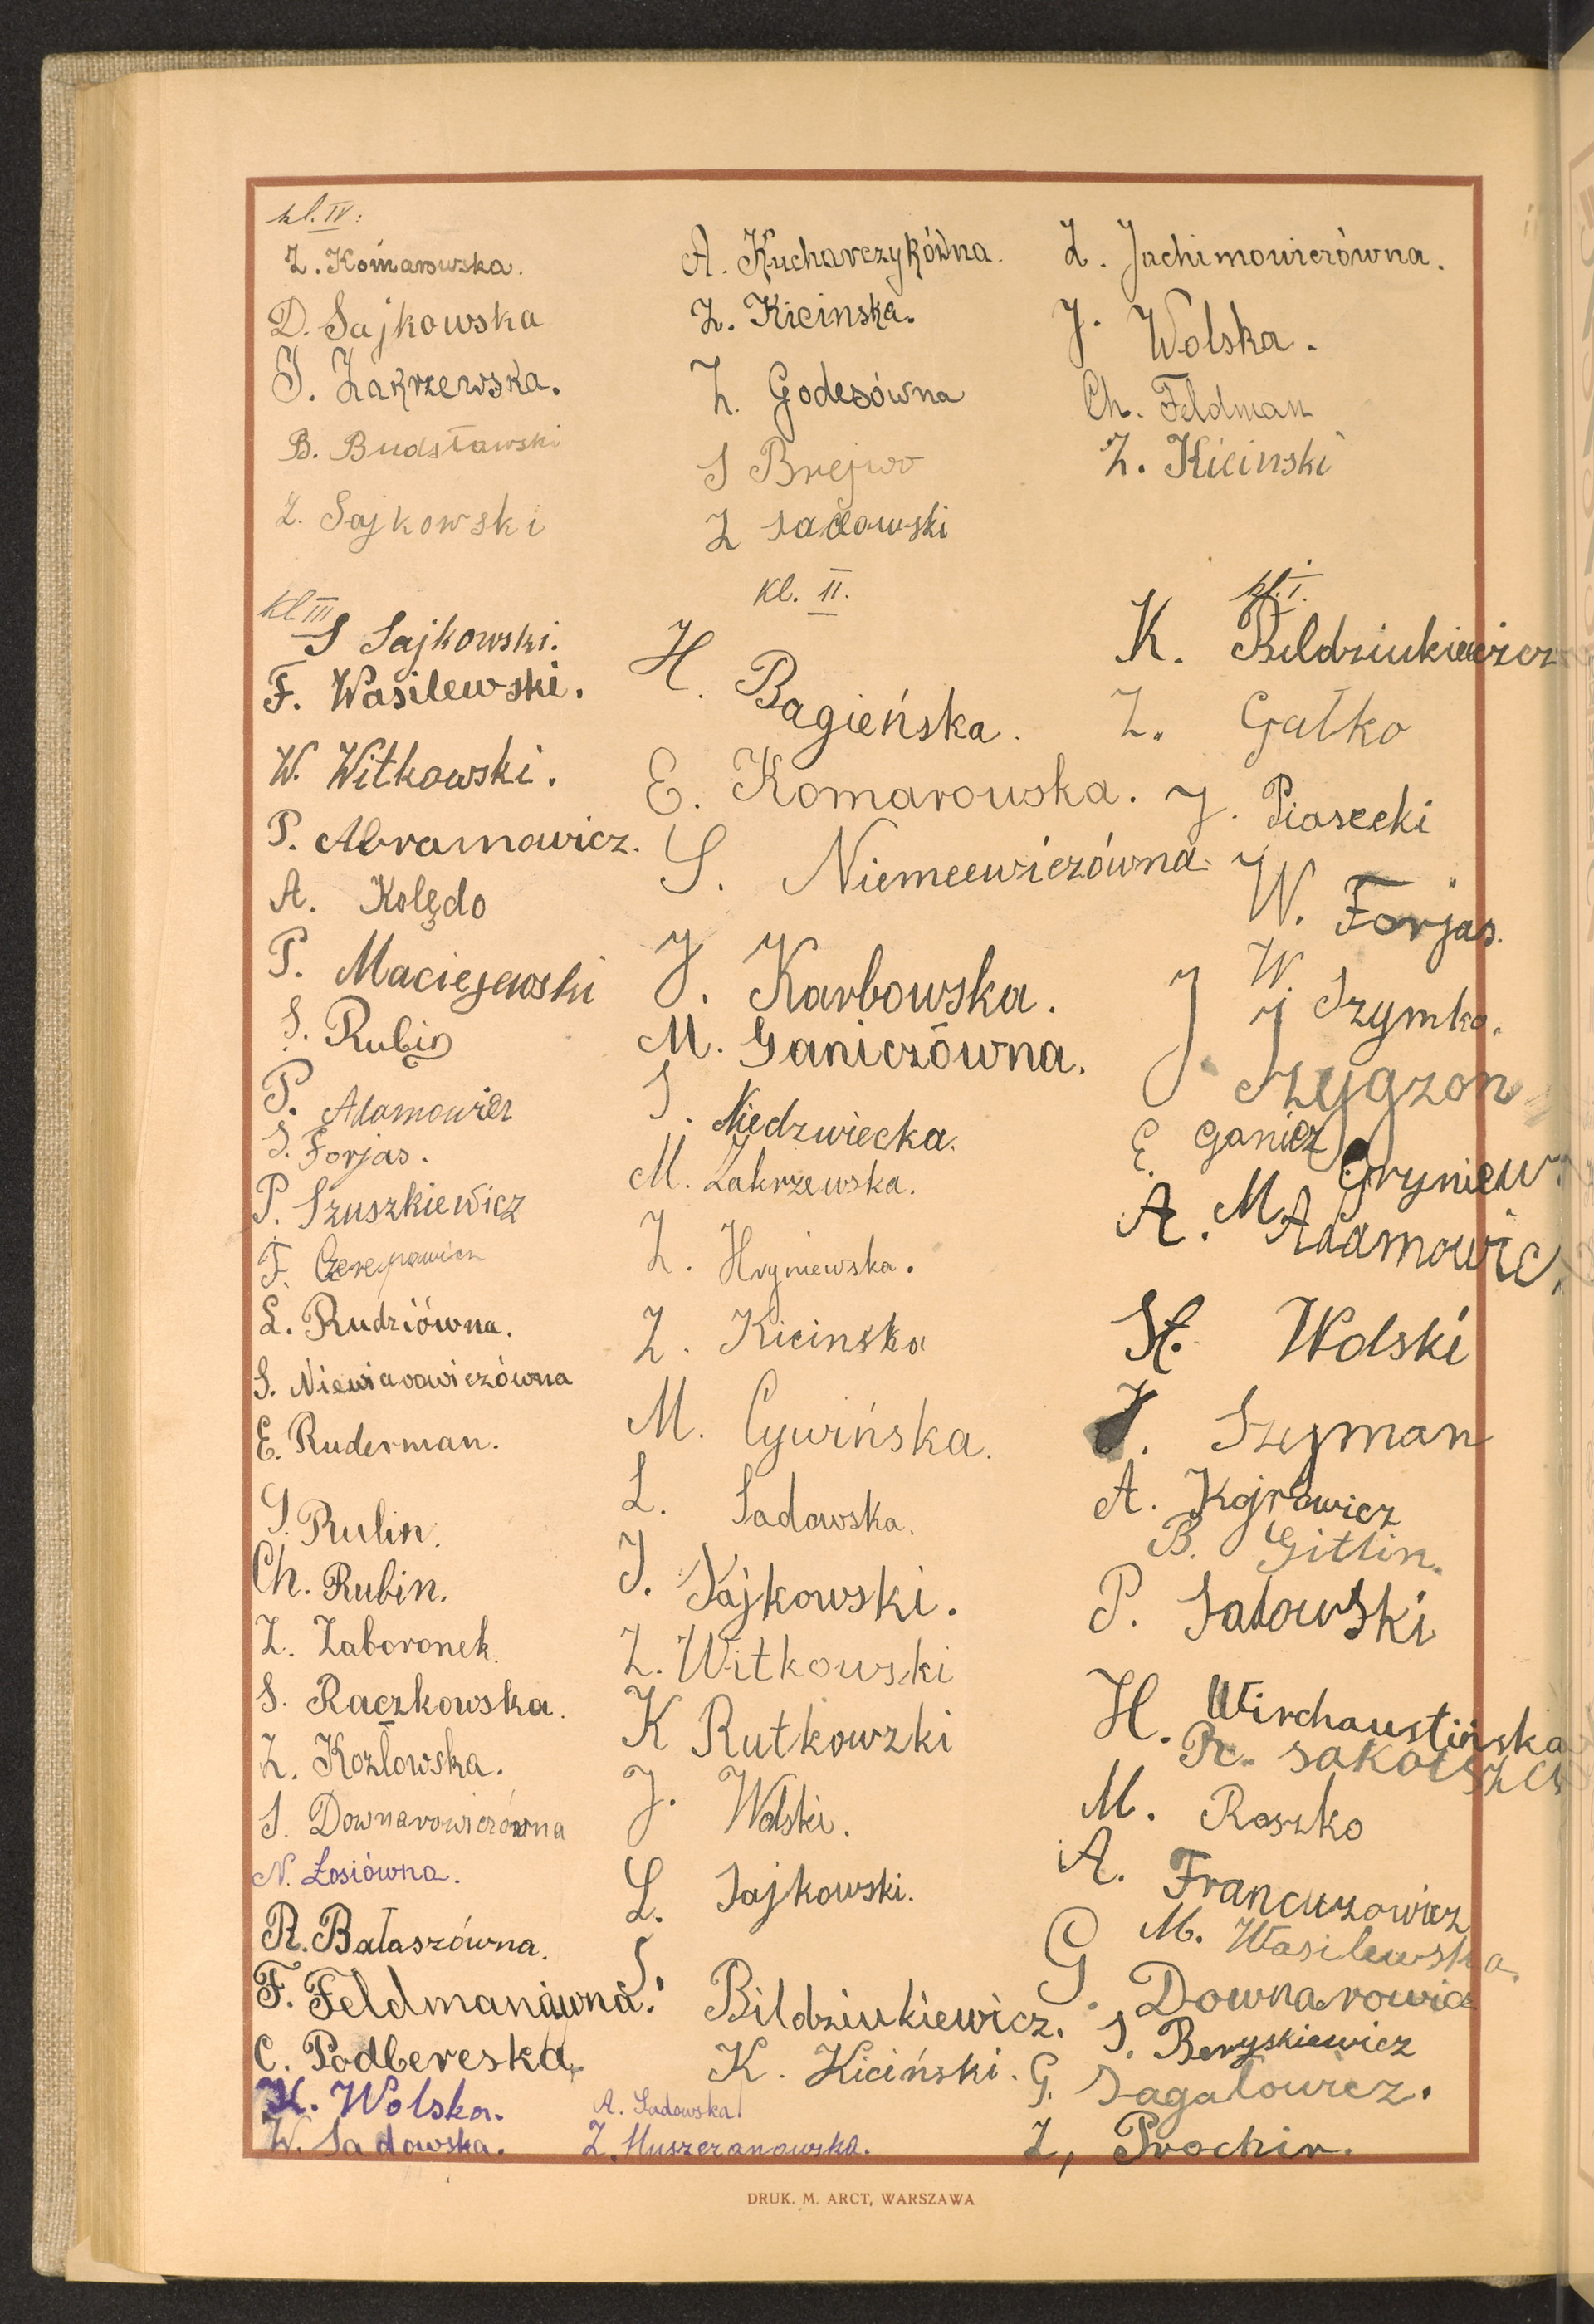 kl. IV:
Z. Komarowska.
D. Sajkowska
J. Zakrzewska.
B. Budsławski
Z. Sajkowski
A. Kucharczykówna.
Z. Kicinska.
Z. Godesówna
S Brejwo
Z Sadowski
Z. Jachimowiczówna.
J. Wolska.
Ch. Feldman
Z. Kicinski
kl III
S Sajkowski.
F. Wasilewski.
W. Witkowski.
P. Abramowicz.
A. Kolędo
P. Maciejewski
S. Rubin
P. Adamowicz
S. Forjas.
P. Szuszkiewicz
F. Czerepowicz
L. Rudziówna.
S. Niewiarowiczówna
E. Ruderman.
S. Rulin.
Ch. Rubin.
Z. Zaboronek.
S. Raczkowska.
Z. Kozłowska.
S. Downarowiczówna
N. Łosiówna.
R. Bałaszówna.
F. Feldmanówna.
C. Podbereska.
K. Wolska.
W. Sadowska.
kl. II.
H. Bagieńska.
E. Komarowska.
S. Niemcewiczówna
J. Karbowska.
M. Ganiczówna.
S. Niedzwiecka.
M. Zakrzewska.
Z. Hryniewska.
Z. Kicinska
M. Cywińska.
L. Sadowska.
J. Sajkowski.
Z. Witkowski
K Rutkowzki
J. Wolski.
L. Sajkowski.
S. Bildziukiewicz.
K. Kiciński.
A. Sadowska.
Z. Muszczanowska.
kl. I.
K. Bildziukiewicz
Z. Gałko
J. Piasecki
W. Forjas.
W. Szymko.
J. J Szygzon
E. Ganicz
M. Gryniew.
A. Adamowic.
St. Wolski
J. Szejman
A. Kojrowicz
B. Gitlin.
P. Sadowski
H. Wirchaustińska
R.
M. Roszko
A. Francuzowicz
M. Wasilewska.
G. Downarowicz
S. Beryskiewicz
G. Sagałowicz.
Z, Prochir.
DRUK. M. ARCT, WARSZAWA